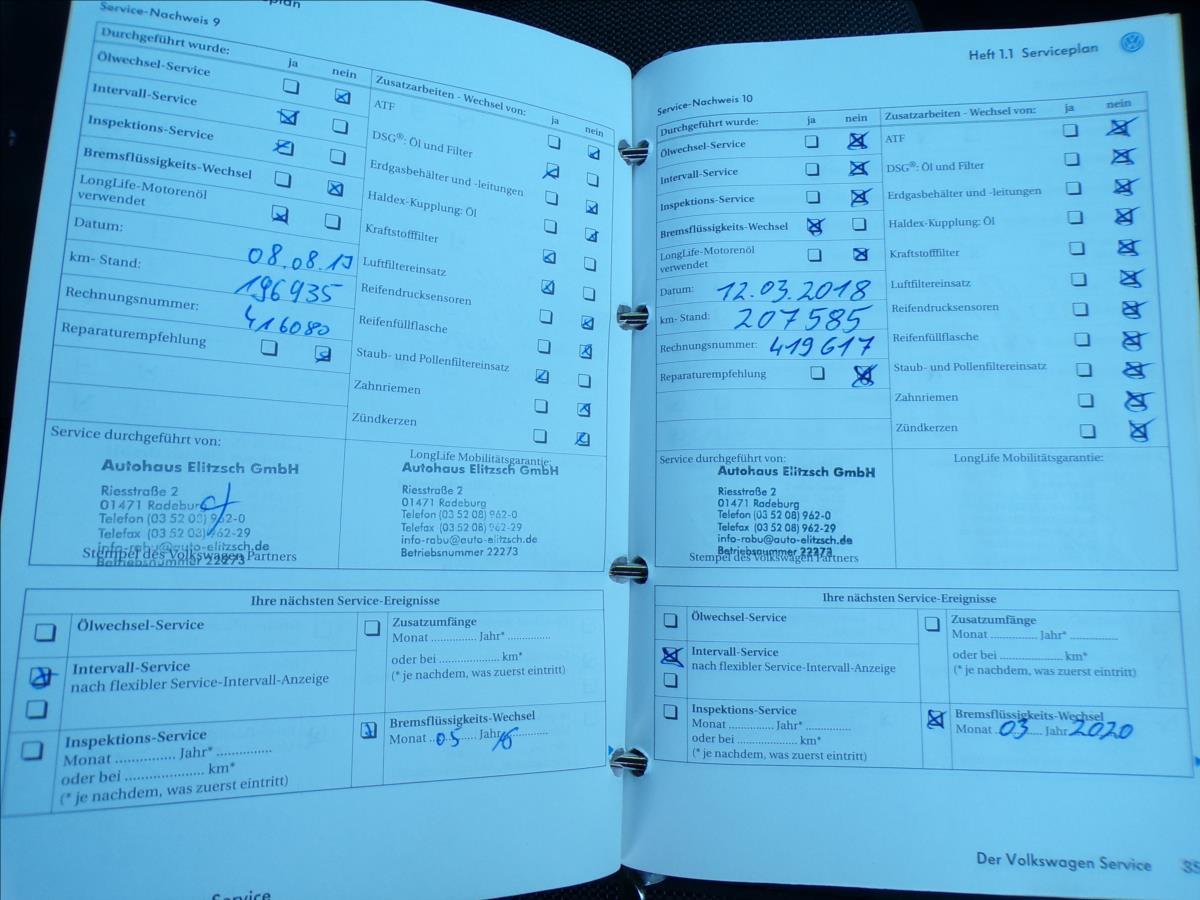 Service-Nachweis 9
Durchgeführt wurde:
ja nein
Ölwechsel-Service
Intervall-Service
Inspektions-Service
Bremsflüssigkeits-Wechsel
LongLife-Motorenöl
verwendet
Datum: 08.08.17
km- Stand: 196935
Rechnungsnummer: 416080
Reparaturempfehlung
Zusatzarbeiten - Wechsel von:
ja nein
ATF
DSG®: Öl und Filter
Erdgasbehälter und -leitungen
Haldex-Kupplung: Öl
Kraftstofffilter
Luftfiltereinsatz
Reifendrucksensoren
Reifenfüllflasche
Staub- und Pollenfiltereinsatz
Zahnriemen
Zündkerzen
Service durchgeführt von:
Autohaus Elitzsch GmbH
Riesstraße 2
01471 Radeburg
Telefon (03 52 08) 962-0
Telefax (03 52 08) 962-29
info-rabu@auto-elitzsch.de
Stempel des Volkswagen Partners
Betriebsnummer 22273
LongLife Mobilitätsgarantie:
Autohaus Elitzsch GmbH
Riesstraße 2
01471 Radeburg
Telefon (03 52 08) 962-0
Telefax (03 52 08) 962-29
info-rabu@auto-elitzsch.de
Betriebsnummer 22273
Ihre nächsten Service-Ereignisse
Ölwechsel-Service
Intervall-Service
nach flexibler Service-Intervall-Anzeige
Inspektions-Service
Monat ............... Jahr* ..............
oder bei .................... km*
(* je nachdem, was zuerst eintritt)
Zusatzumfänge
Monat ............. Jahr* .............
oder bei .................... km*
(* je nachdem, was zuerst eintritt)
Bremsflüssigkeits-Wechsel
Monat 05 Jahr
Service
Heft 1.1 Serviceplan
Service-Nachweis 10
Durchgeführt wurde: ja nein
Ölwechsel-Service
Intervall-Service
Inspektions-Service
Bremsflüssigkeits-Wechsel
LongLife-Motorenöl
verwendet
Datum: 12.03.2018
km- Stand: 207585
Rechnungsnummer: 419617
Reparaturempfehlung
Zusatzarbeiten - Wechsel von: ja nein
ATF
DSG®: Öl und Filter
Erdgasbehälter und -leitungen
Haldex-Kupplung: Öl
Kraftstofffilter
Luftfiltereinsatz
Reifendrucksensoren
Reifenfüllflasche
Staub- und Pollenfiltereinsatz
Zahnriemen
Zündkerzen
Service durchgeführt von:
Autohaus Elitzsch GmbH
Riesstraße 2
01471 Radeburg
Telefon (03 52 08) 962-0
Telefax (03 52 08) 962-29
info-rabu@auto-elitzsch.de
Betriebsnummer 22273
Stempel des Volkswagen Partners
LongLife Mobilitätsgarantie:
Ihre nächsten Service-Ereignisse
Ölwechsel-Service
Intervall-Service
nach flexibler Service-Intervall-Anzeige
Inspektions-Service
Monat ............... Jahr* ..............
oder bei .................... km*
(* je nachdem, was zuerst eintritt)
Zusatzumfänge
Monat ............. Jahr* .............
oder bei .................... km*
(* je nachdem, was zuerst eintritt)
Bremsflüssigkeits-Wechsel
Monat 03 Jahr 2020
Der Volkswagen Service 35